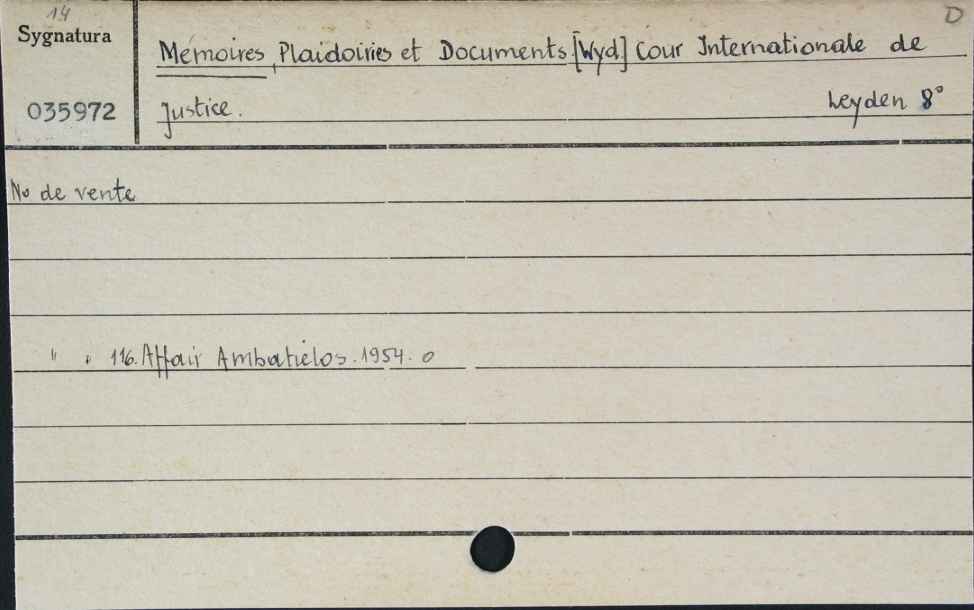 14
D
Sygnatura
Mémoires, Plaidoiries et Documents [Wyd] Cour Internationale de
035972
Justice. Leyden 8°
No de vente
" " 116. Affair Ambatielos. 1954. o